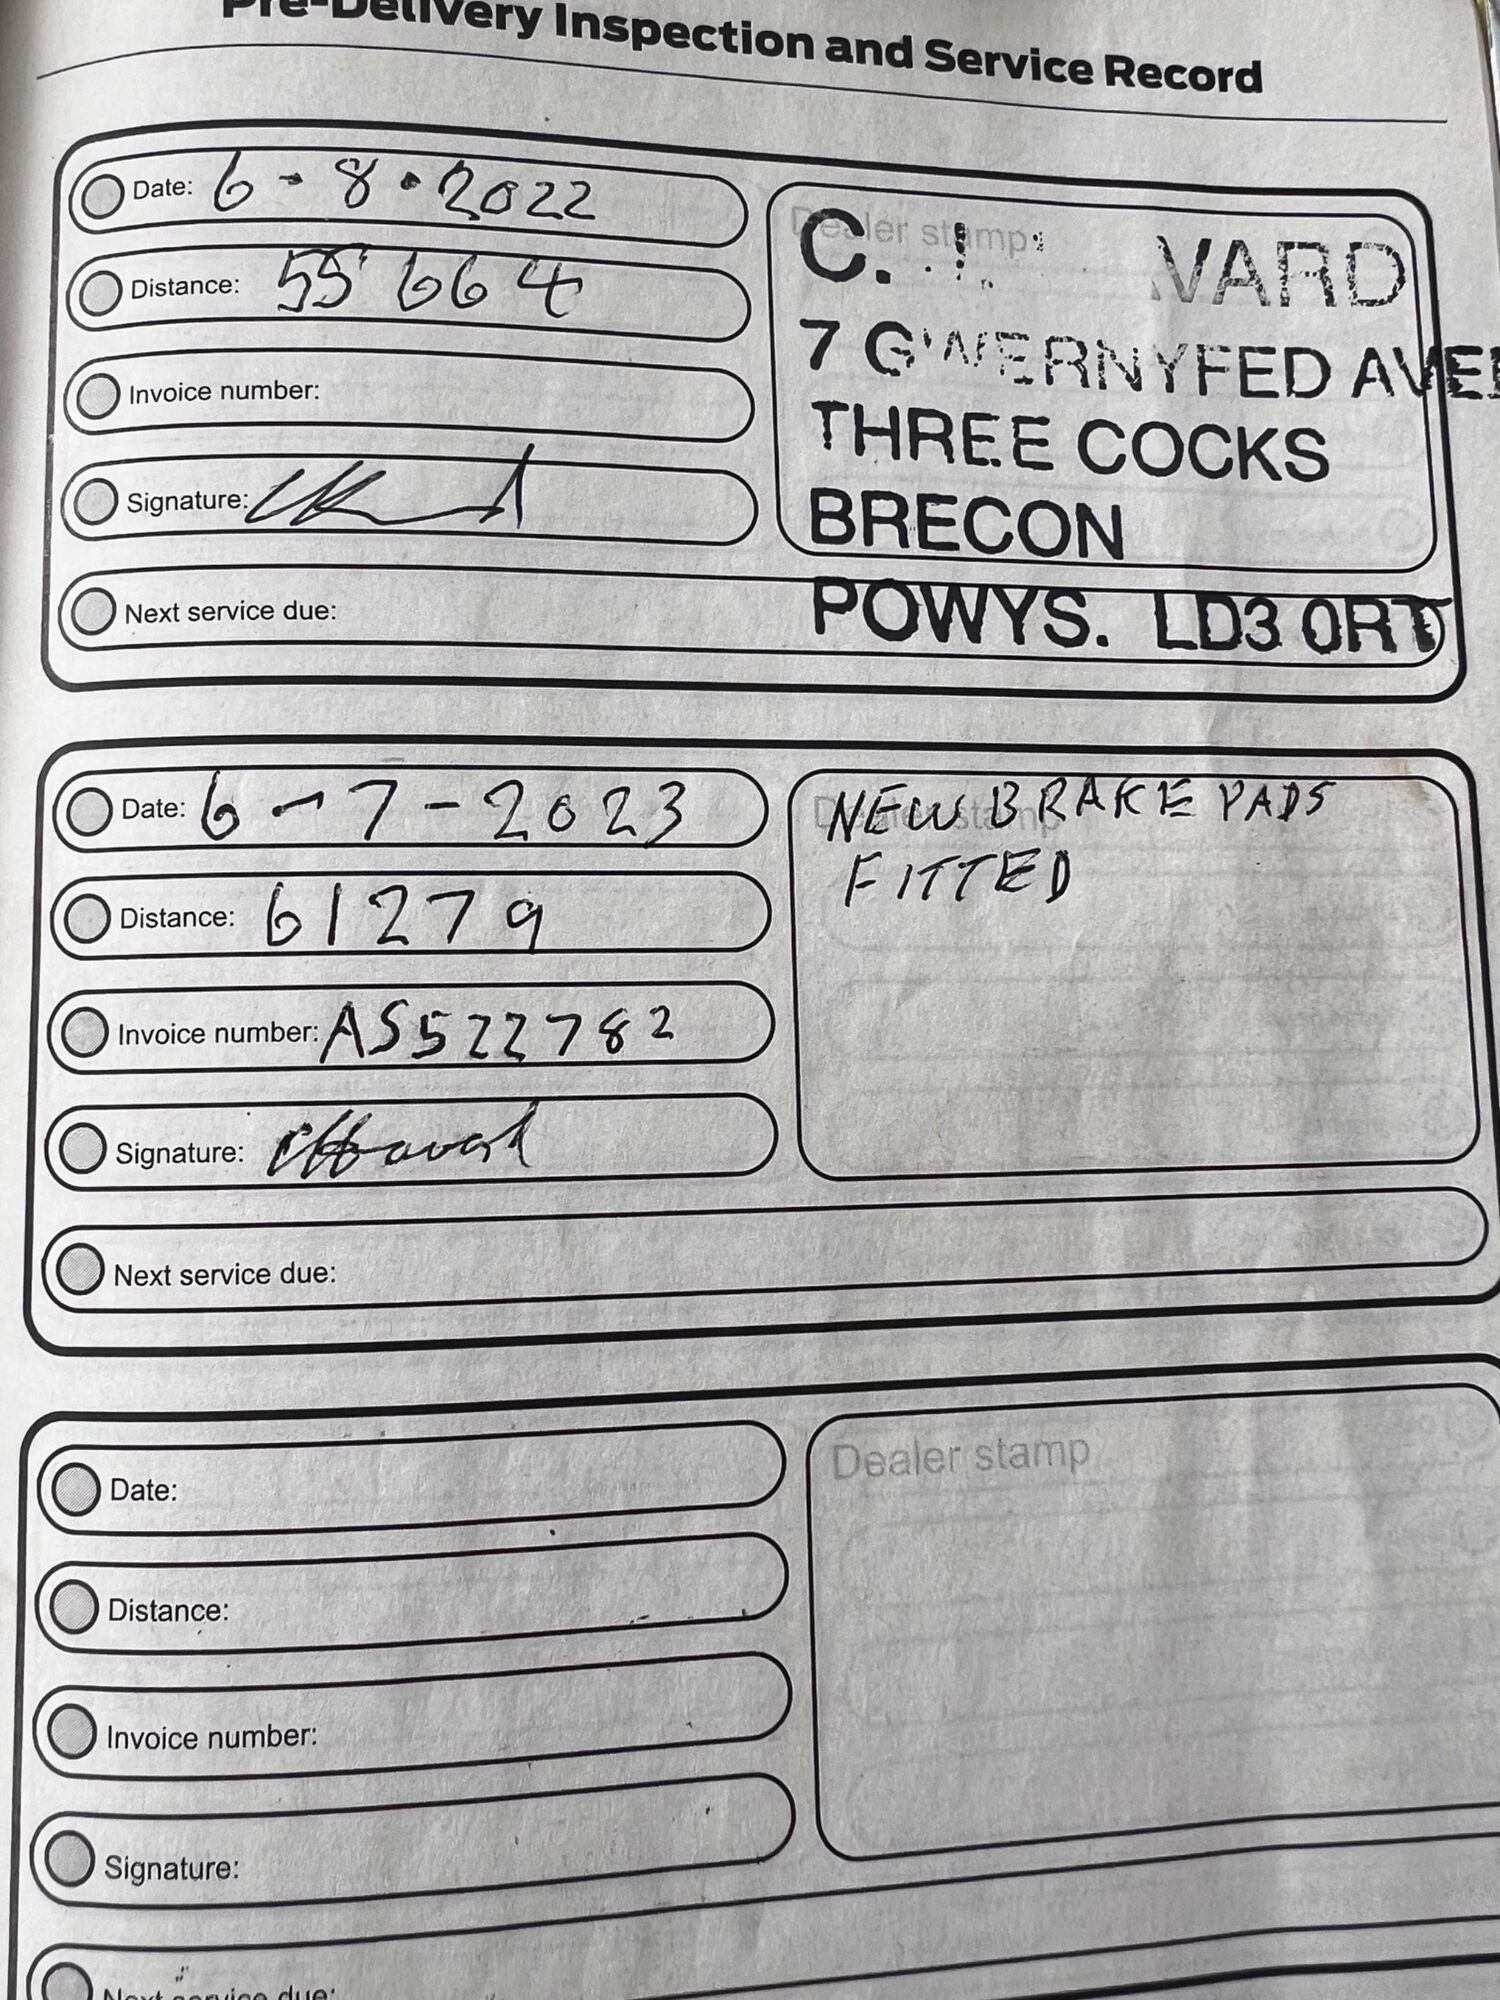 Pre-Delivery Inspection and Service Record
Date: 6-8.2022
Distance: 55 664
Invoice number:
Signature:
Next service due:
Dealer stamp
C. VARD
7 GWERNYFED AVE
THREE COCKS
BRECON
POWYS. LD3 0RT
Date: 6-7-2023
Distance: 61279
Invoice number: AS522782
Signature:
Next service due:
Dealer stamp
NEW BRAKE PADS
FITTED
Date:
Distance:
Invoice number:
Signature:
Next service due:
Dealer stamp